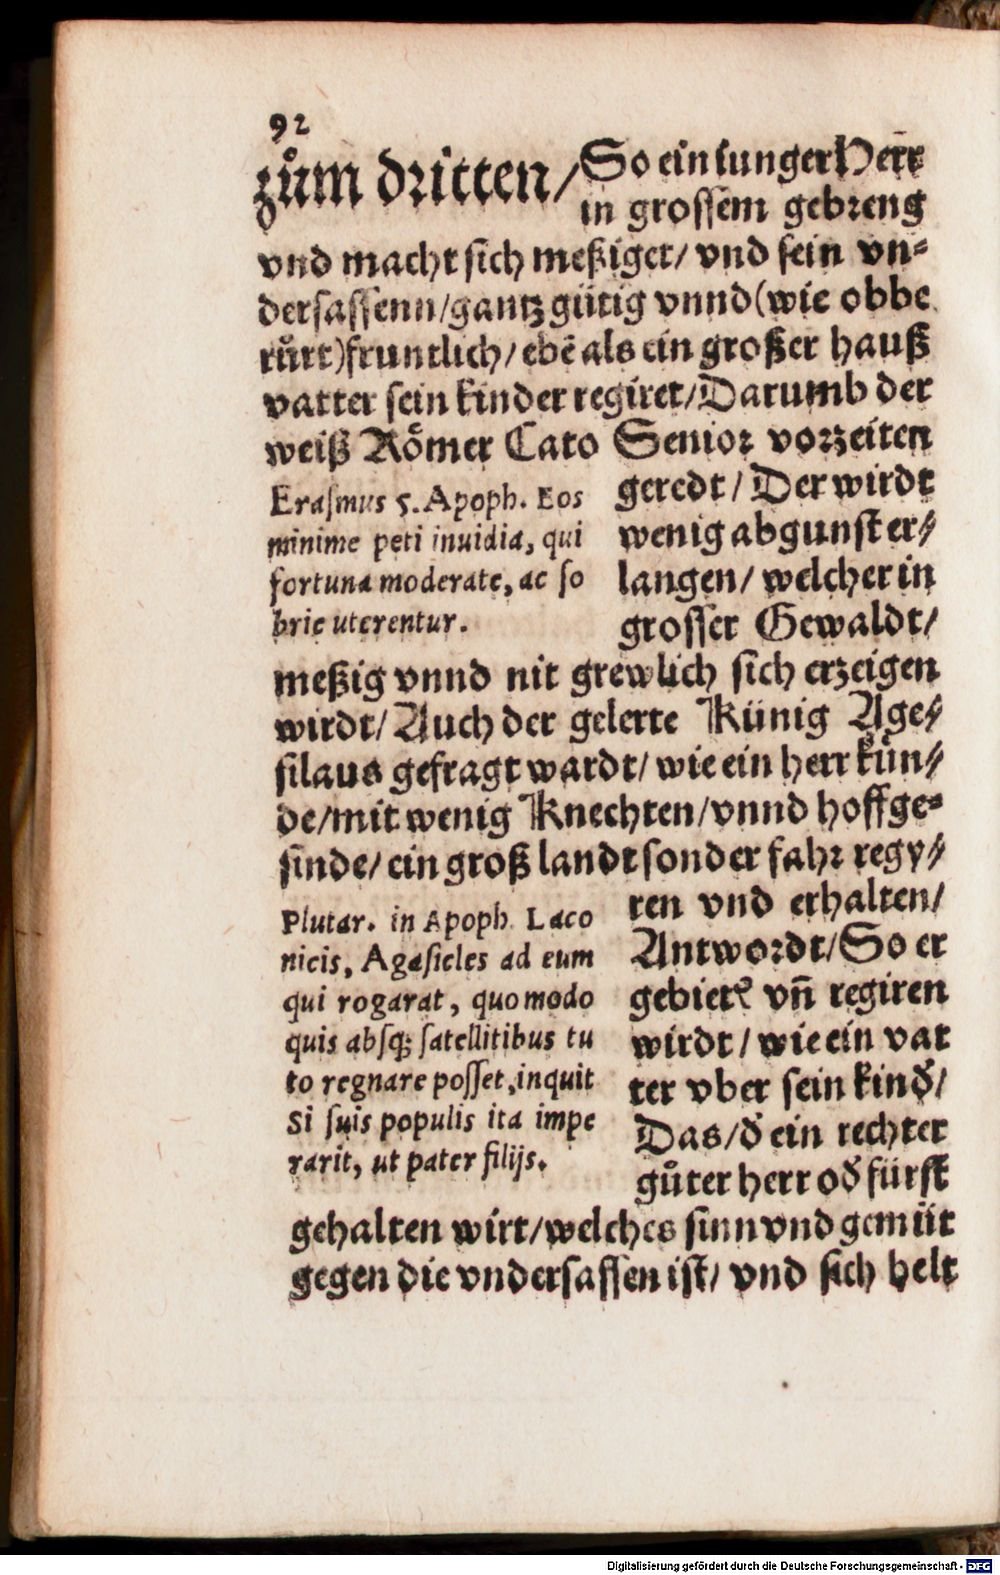 92
zům dritten / So ein iunger Herr
in grossem gebreng
vnd macht sich meßiget / vnd sein vn-
dersassenn / gantz gütig vnnd (wie obbe
růrt) fruntlich / ebē als ein großer hauß
vatter sein kinder regiret / Darumb der
weiß Römer Cato Senior vorzeiten
geredt / Der wirdt
wenig abgunst er/
langen / welcher in
grosser Gewaldt /
Erasmus 5. Apoph. Eos
minime peti inuidia, qui
fortuna moderate, ac so
brie uterentur.
meßig vnnd nit grewlich sich erzeigen
wirdt / Auch der gelerte Künig Age/
silaus gefragt wardt / wie ein herr kůn/
de / mit wenig Knechten / vnnd hoffge-
sinde / ein groß landt sonder fahr regy/
ren vnd erhalten /
Antwordt / So er
gebietē vñ regiren
wirdt / wie ein vat
ter vber sein kind̕ /
Das / d̕ ein rechter
gůter herr od̕ fürst
Plutar. in Apoph. Laco
nicis, Agasicles ad eum
qui rogarat, quomodo
quis absq; satellitibus tu
to regnare posset, inquit
Si suis populis ita impe
rarit, ut pater filijs.
gehalten wirt / welches sinn vnd gemüt
gegen die vndersassen ist / vnd sich helt
Digitalisierung gefördert durch die Deutsche Forschungsgemeinschaft - DFG